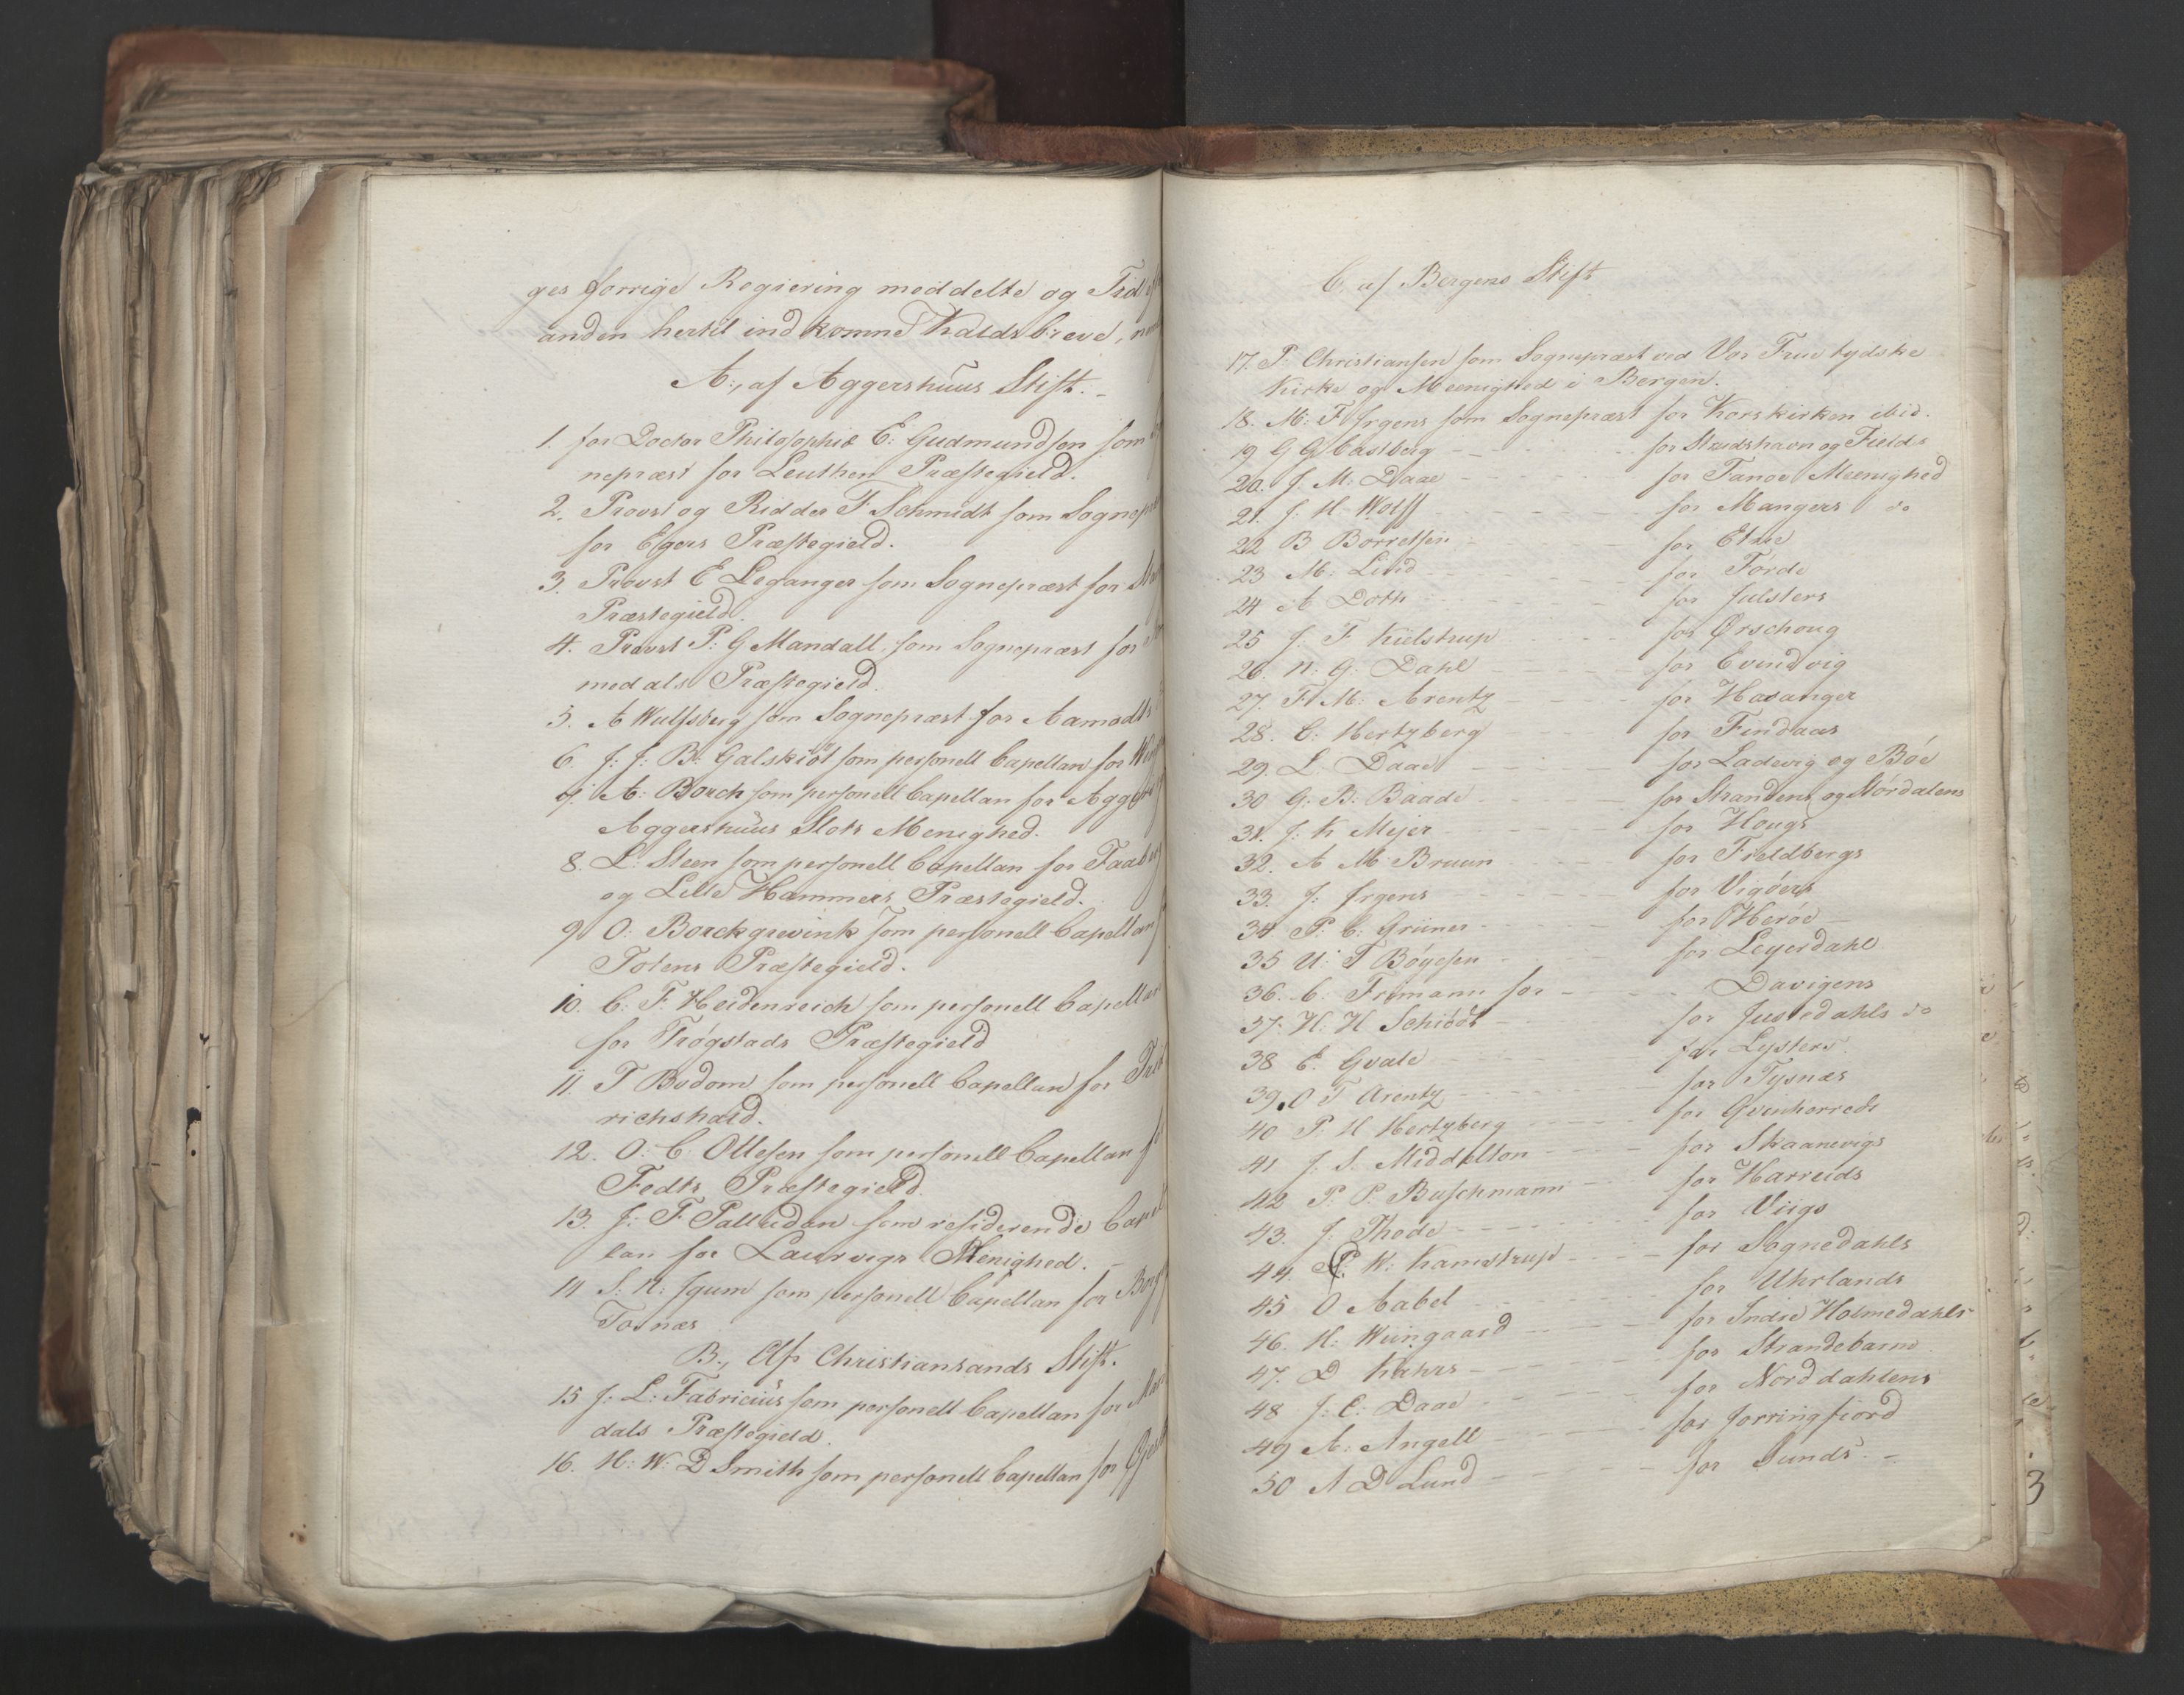 ges forrige Regiering meddelte og Tid efter
anden hertil indkomne Kaldsbreve,
A., af Aggershuus Stift.
1. for Doctor Philosophiæ E: Gudmundsen som
nepræst for Leuthen Præstegield.
2. Provst og Ridder F. Schmidt som Sognepræ
for Egers Præstegield.
3. Provst E Leganger som Sognepræst for
Præstegield.
4. Provst P: G Mandall som Sognepræst for
medals Præstegield.
5. A Wulfsberg som Sognepræst for Aamodts
6. J: J: B: Galskiöt som personell Capellan for
7. A: Borch som personell Capellan for Aggers og
Aggershuus Slots Menighed.
8. L: Steen som personell Capellan for Faabergs
og Lille Hammers Præstegield.
9 O: Borchgrevink som personell Capellan
Totens Præstegield.
10. C: F: Heidenreich som personell Capellan
for Trøgstads Præstegield
11. T Bodom som personell Capellan for Fred
richshald.
12. O: C Ottesen som personell Capellan for
Fedts Præstegield
13. J: F Palludan som residerende Capel
lan for Laurvigs Menighed.
14 S: N: Jgum som personell Capellan for
Tornæs
B., Af Christiansands Stift.
15 J: L: Fabricius som personell Capellan for Man
dals Præstegield.
16. H: W: D Smith som personell Capellan for
C. af Bergens Stift
17. P: Christiansen som Sognepræst ved Vor Frue tydske
Kirke og Meenighed i Bergen.
18. M: F Jrgens som Sognepræst for Korskirken ibid.
19 G G Castberg - - - for Studshavn og Fields
20. J. M: Daae - - - for Fanøe Meenighed
21. J. H. Wolff - - - for Mangers do
22 B Borretsen - - - for Etne
23 M: Lind - - - for Førde
24 A Doth - - - for Julsters
25 J. F. Kielstrup - - - for Ørschoug
26 N: G: Dahl - - - for Evindvig
27. F: M: Arentz - - - for Havanger
28. C: Hertzberg - - - for Findaas
29. L: Daae - - - for Ladevig og Bøe
30 G: B: Baade - - - for Strandens og Stórdalens
31. J: K Mejer - - - for Hougs
32. A M Bruun - - - for Fieldbergs
33. J: Jrgens - - - for Vigøers
34 P: C: Grüner - - - for Herøe
35 U: F Bøyesen - - - for Leyerdahl
36. C: Frimann for - - - Davigens
37. H: H Schiödt - - - for Justedahls do
38 E. Gvale - - - for Lysters
39. O F Arentz - - - for Tysnæs
40 P: H Hertzberg - - - for Qvinherreds
41 J. S. Middelton - - - for Skaanevigs
42 P: P: Buschmann - - - for Harreids
43. J. Thode - - - for Viigs
44. C: W: Kamstrup - - - for Sognedahls
45 O Aabel - - - for Uhrlands
46. H: Wiingaard - - - for Indre Holmedahls
47. D Kahrs - - - for Strandebarm
48 J: C: Daae - - - for Norddahlens
49 A: Angell - - - for Jorringfiord
50 N D Lund - - - for Sunds. -
3